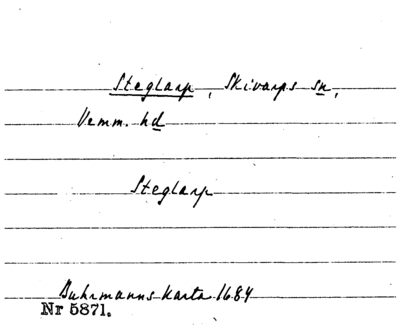 Steglarp, Skivarps sn,
Vemm. hd
Steglarp
Buhrmanns karta 1684
Nr 5871.